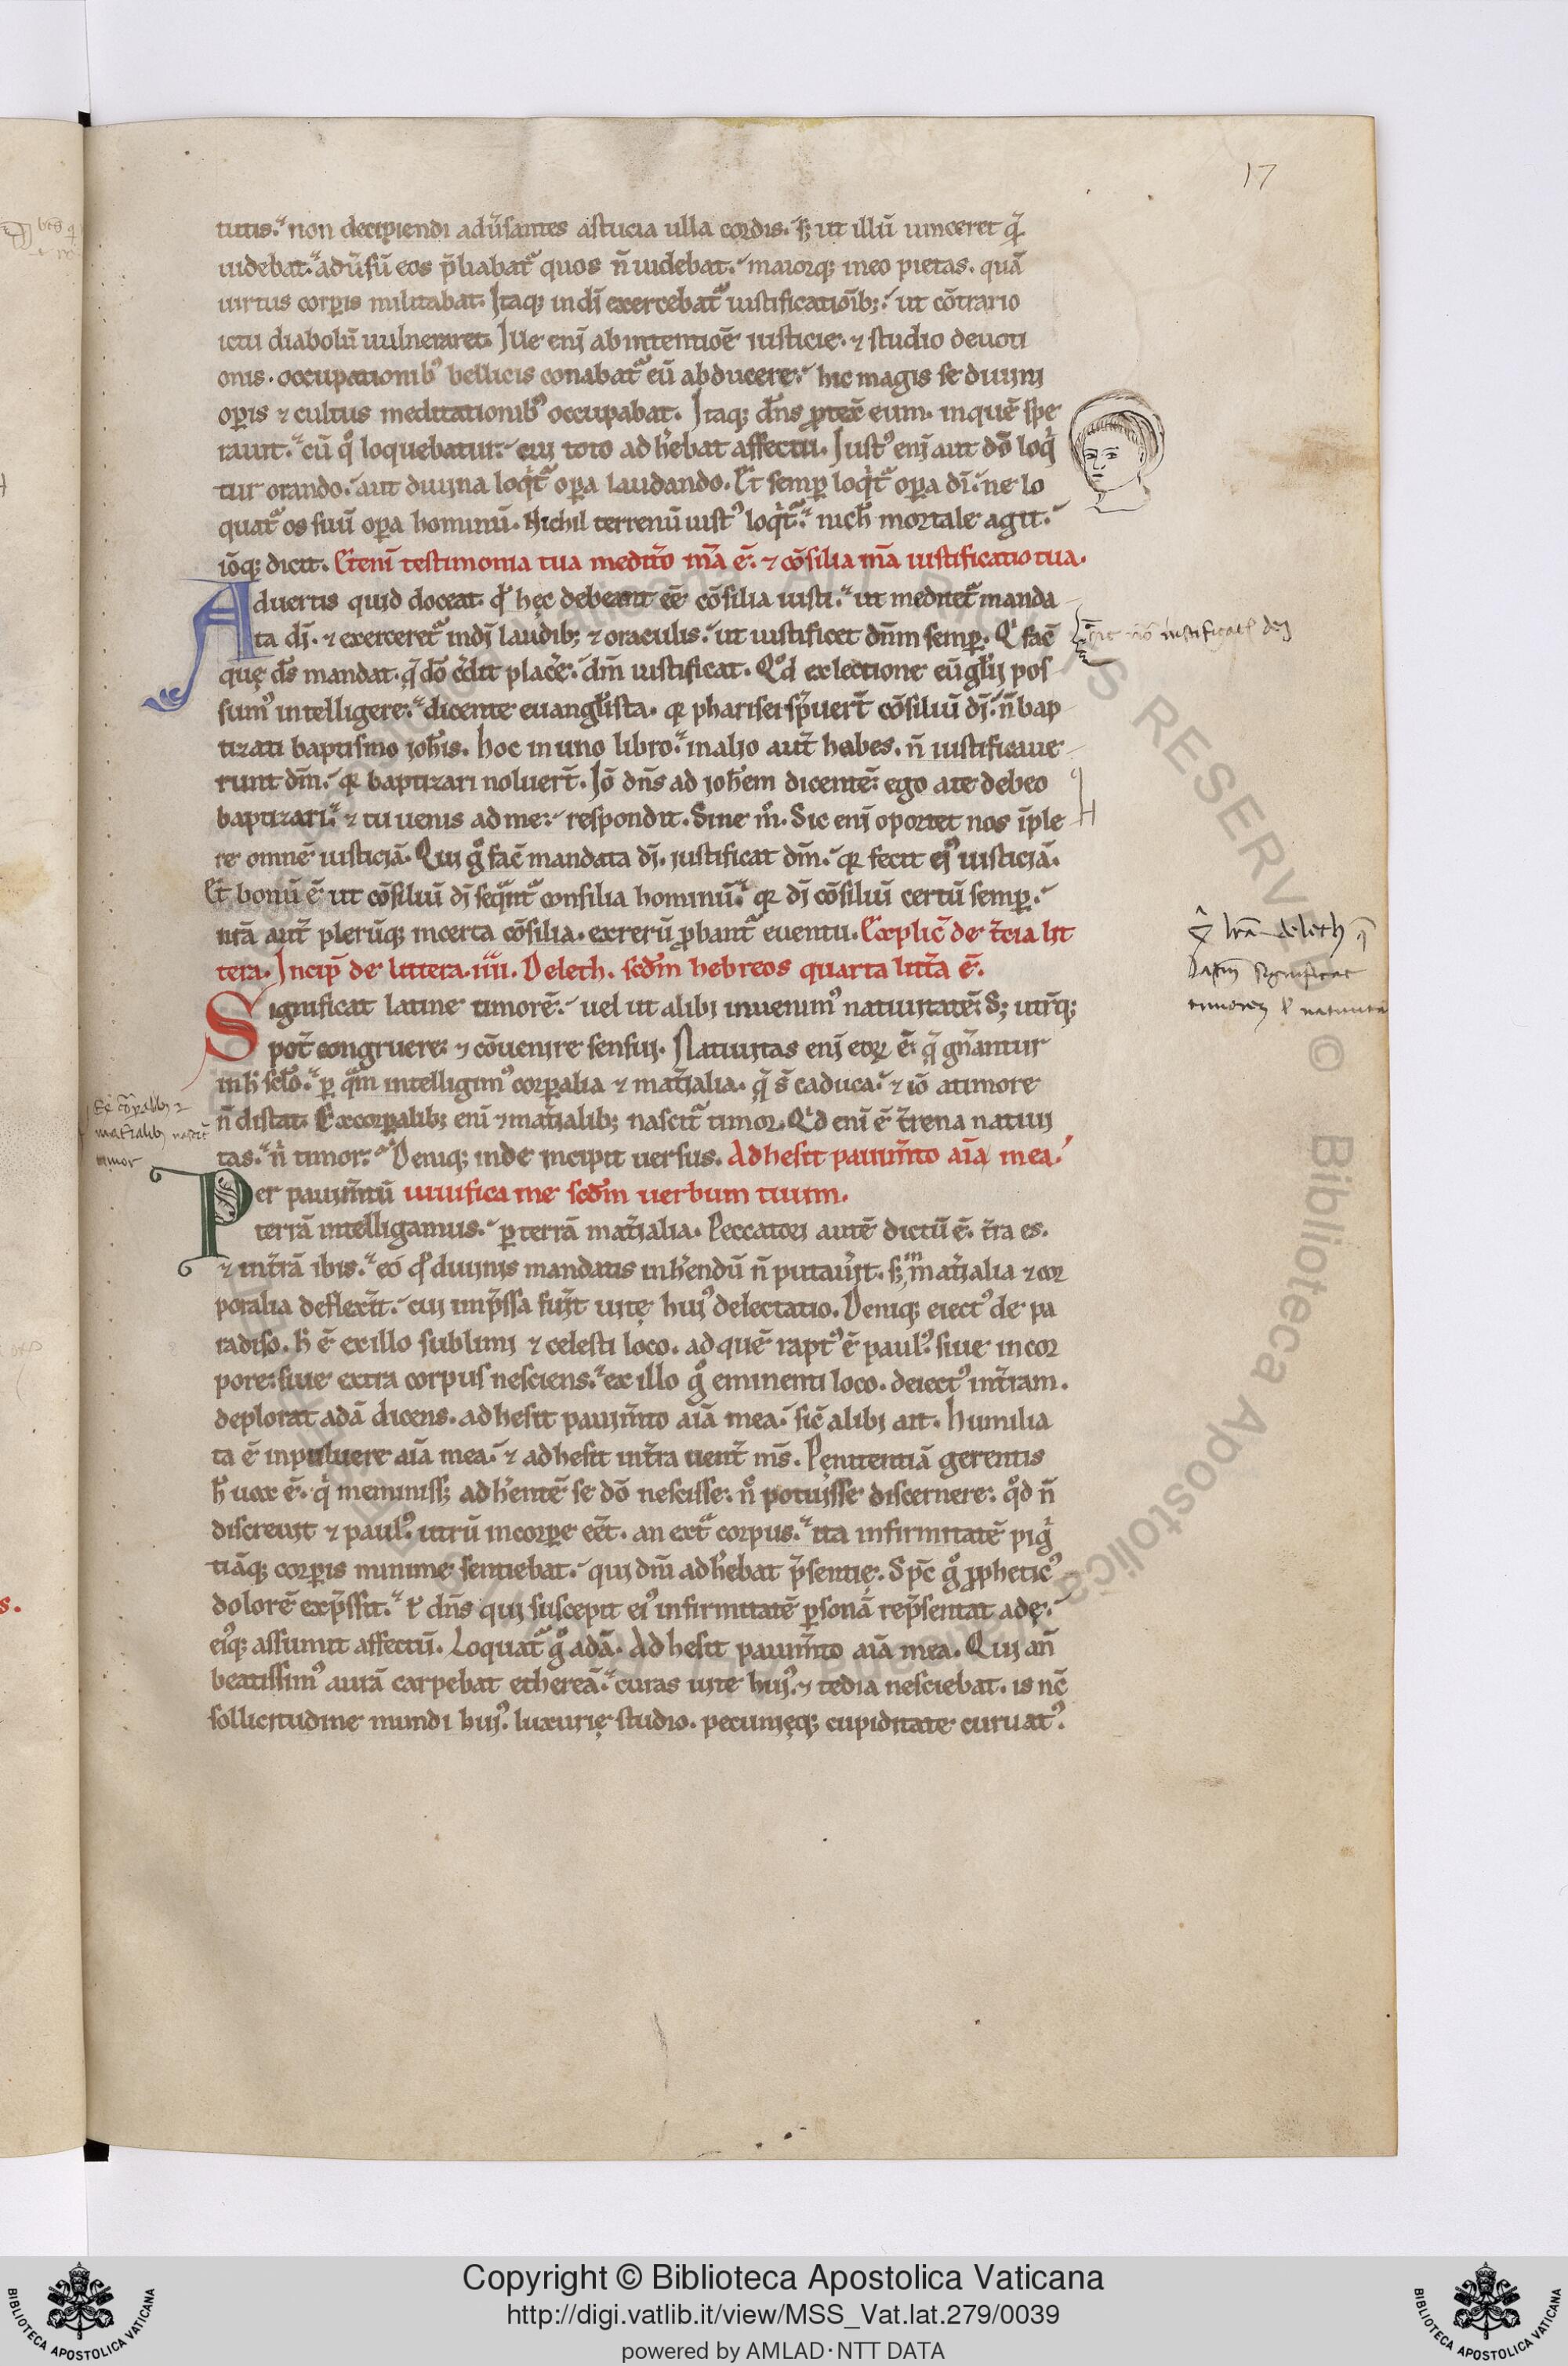 17
tutis. non decipiendi adũsantes astucia ulla cordis. sꝫ ut illũ uinceret q̃
uidebat. adũsũ eos p̃liabat̃ quos ñ uidebat. maiorqꝫ in eo pietas. quã
uirtus corꝑis militabat. Itaqꝫ in dĩ exercebat̃ iustificatiõibꝫ. ut cõtrario
ictu diabolũ uulneraret. Ille enĩ ab intentiõe iusticie. ⁊ studio deuoti
onis. occupationibꝰ bellicis conabat̃ eũ abducere. hic magis se diuini
oꝑis ⁊ cultus meditationibꝰ occupabat. Itaqꝫ dñs ꝓtex̃ eum. in quẽ spe
rauit. cũ qͦ loquebatur. eui toto adh̾ebat affectu. Iustꝰ enĩ aut dõ loqͥ
tur orando. aut diuina loqͥt̃ oꝑa laudando. Et semꝑ loqͥt̃ oꝑa dĩ. ne lo
quat̃ os suũ oꝑa hominũ. Nichil terrenũ iustꝰ loqͥt̃. nich̃ mortale agit.
iõqꝫ dicit. Etenĩ testimonia tua medit̃o m̃a ẽ. ⁊ cõsilia m̃a iustificatio tua.
Aduertis quid doceat. qͩ hęc debeant eẽ cõsilia iusti. ut meditet̃ manda
ta dĩ. ⁊ exerceret̃ in dĩ laudibꝫ ⁊ oraculis. ut iustificet dñm semꝑ. Qͥ fac̃
quę ds̃ mandat. q̃ dõ c̃dit plac̾e. dm̃ iustificat. Qͦd ex lectione eũglĩj pos
sumꝰ intelligere. dicente euangl̃ista. qꝛ pharisei sp̃uert̃ cõsiliũ dĩ. ñ bap
tizati baptismo ioh̃is. Hoc in uno libro. in alio aut̃ habes. ñ iustificaue
runt dm̃. qꝛ baptizari noluert̃. Iõ dñs ad ioh̃em dicentẽ. ego a te debeo
baptizari. ⁊ tu uenis ad me. respondit. Sine mͦ. Sic enĩ oportet nos ĩple
re omnẽ iusticiã. Qui gͦ fac̃ mandata dĩ. iustificat dm̃. qꝛ fecit eiꝰ iusticiã.
Et bonũ ẽ ut cõsiliũ dĩ seqͣnt̃ consilia hominũ. qꝛ dĩ cõsiliũ certũ semꝑ.
nr̃a aut̃ plerũqꝫ incerta cõsilia. ex rerũ ꝓbant̃ euentu. Explic̃ de t̃cia lit
tera. Incip̃ de littera .iiii. Deleth. sc̃dm hebreos quarta litt̃a ẽ.
Significat latine timorẽ. uel ut alibi inuenimꝰ natiuitatẽ. Sꝫ utrũqꝫ
pot̃ congruere ⁊ cõuenire sensui. Natiuitas enĩ eoꝝ ẽ. q̃ gñantur
in h̾ sc̃lo. ꝑ qͣm intelligimꝰ corꝑalia ⁊ mat̃ialia. q̃ s̃ caduca. ⁊ iõ a timore
ñ distat. Ex corꝑalibꝫ enĩ ⁊ mat̃ialibꝫ nascit̃ timor. Qͩ enĩ ẽ t̃rena natiui
tas. nͥ timor. Deniqꝫ inde incipit uersus. Adhesit pauim̃to aĩa mea.
Per pauim̃tũ uiuifica me sc̃dm uerbum tuum.
terrã intelligamus. ꝑ terrã mat̃ialia. Peccatori autẽ dictũ ẽ. t̃ra es.
⁊ in t̃rã ibis. eo qͩ diuinis mandatis inh̾endũ ñ putau̾it. sꝫ in mat̃ialia ⁊ cor
poralia deflex̾it. cui imp̃ssa fu̾it uitę huiꝰ delectatio. Deniqꝫ eiectꝰ de pa
radiso. h̾ ẽ ex illo sublimi ⁊ celesti loco. ad quẽ raptꝰ ẽ paulꝰ. siue in cor
pore. siue extra corpus nesciens. ex illo gͦ eminenti loco. deiectꝰ in t̃ram.
deplorat adã dicens. adhesit pauim̃to aĩa mea. sic̃ alibi ait. Humilia
ta ẽ in puluere aĩa mea. ⁊ adhesit in t̃ra uent̃ ms̃. Pęnitentiã gerentis
h̾ uox ẽ. qͥ meminissꝫ adh̾entẽ se dõ nescisse. nͦ potuisse discernere. qͦd ñ
discreuit ⁊ paulꝰ. utrũ in corꝑe eẽt. an extͣ corpus. ita infirmitatẽ pigͥ
tiãqꝫ corꝑis minime sentiebat. qui dñi adh̾ebat p̃sentię. Sp̃c gͦ ꝓpheticꝰ
dolorẽ exp̃ssit. ł dñs qui suscepit eiꝰ infirmitatẽ ꝑsonã rep̃sentat adę.
eiꝰqꝫ assumit affectũ. Loquat̃ gͦ adã. Adhesit pauim̃to aĩa mea. Qui añ
beatissimꝰ aurã carpebat ethereã. curas uite huiꝰ ⁊ tedia nesciebat. is nc̃
sollicitudine mundi huiꝰ. luxurię studio. pecunięqꝫ cupiditate curuatꝰ.
Ex cõꝑalibꝫ ⁊
mat̃ialibꝫ nascit̃
timor
lr̃a deleth
significat
timorem ł natiuita
Copyright © Biblioteca Apostolica Vaticana
http://digi.vatlib.it/view/MSS_Vat.lat.279/0039
powered by AMLAD·NTT DATA
BIBLIOTECA APOSTOLICA VATICANA
BIBLIOTECA APOSTOLICA VATICANA